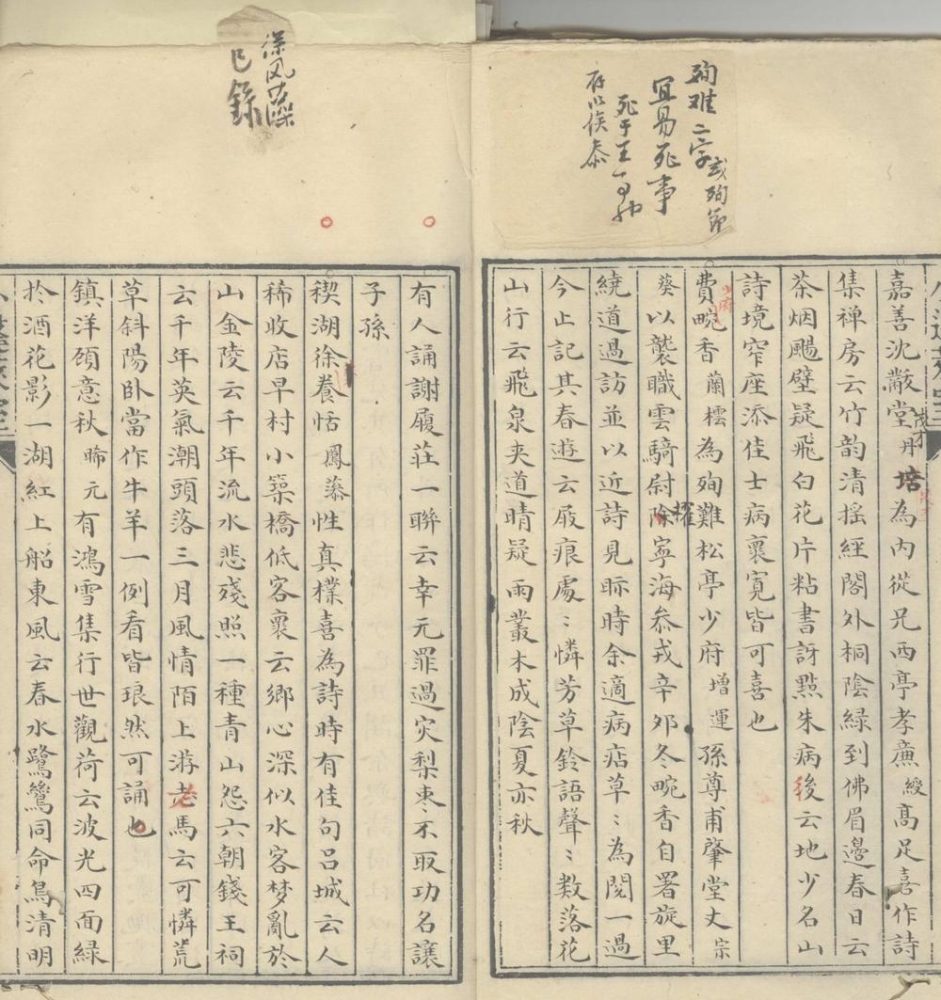 殉难二字或殉節
宜易死事
死于王事也
存以俟泰
嘉善沈黻堂茂才丹培為內從兄西亭孝亷綬高足喜作詩
集禅房云竹韵清摇經閣外桐陰緑到佛眉邊春日云
茶烟颺壁疑飛白花片粘書訝㸃朱病後云地少名山
詩境窄座添佳士病裏寛皆可喜也
費畹香蘭櫺為殉難松亭少府增運孫尊甫肇堂丈宗
葵以襲職雲騎尉除擢寧海叅戎辛夘冬畹香自署旋里
繞道過訪並以近詩見眎時余適病痁草〻為閱一過
今止記其春遊云屐痕處〻憐芳草鈴語聲〻数落花
山行云飛泉夹道晴疑雨叢木成陰夏亦秋
深风藻
已錄
有人誦謝履莊一聯云幸元罪過灾梨枣不取功名讓
子孫
稧湖徐養恬鳳藻性真樸喜為詩時有佳句呂城云人
稀收店早村小築橋低客裏云鄉心深似水客梦亂於
山金陵云千年流水悲殘照一種青山怨六朝錢王祠
云千年英氣潮頭落三月風情陌上游老馬云可憐荒
草斜陽卧當作牛羊一例看皆琅然可誦也
鎮洋顔意秋晞元有鴻雪集行世觀荷云波光四面緑
於酒花影一湖紅上船東風云春水鷺鷥同命鳥清明